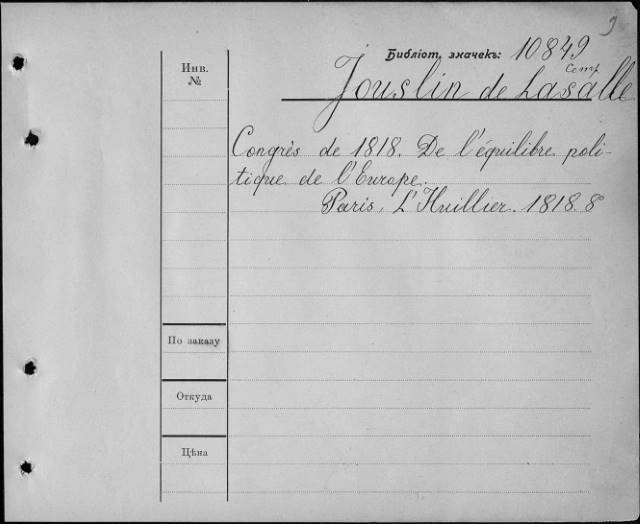 9
Библіот. значекъ: 10849
Comp
Jouslin de Lasalle
Инв.
№
Congrès de 1818. De l'équilibre poli-
tique de l'Europe.
Paris, L'Huillier. 1818. 8
По заказу
Откуда
Цѣна